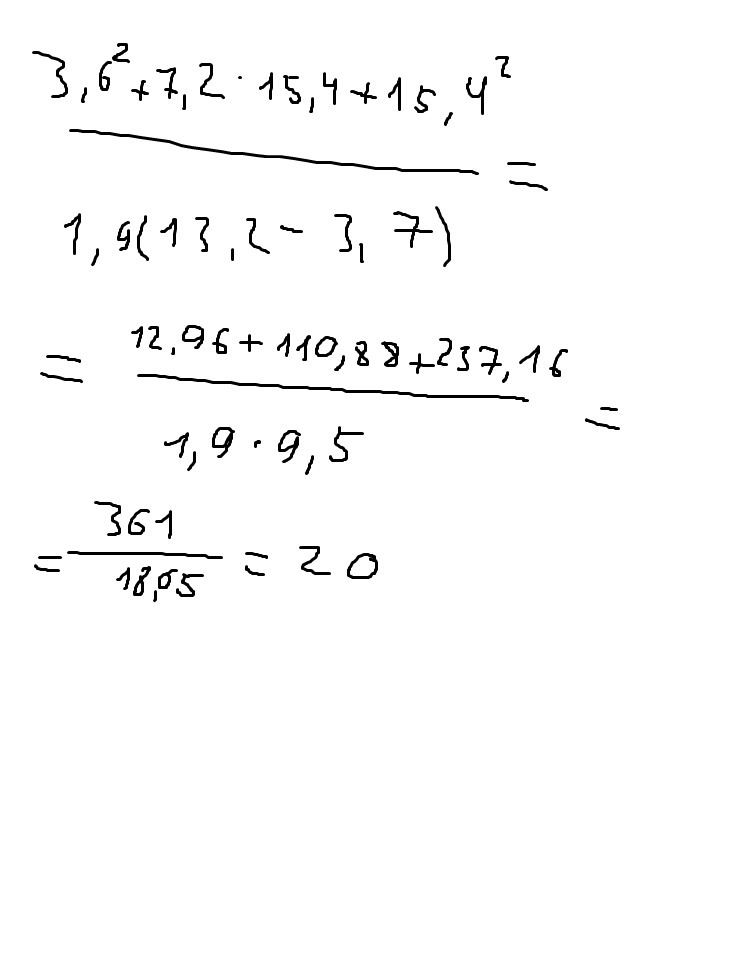 3,6²+7,2·15,4+15,4²
=
1,9(13,2-3,7)
= 12,96+110,88+237,16
=
1,9·9,5
= 361
18,05 = 20